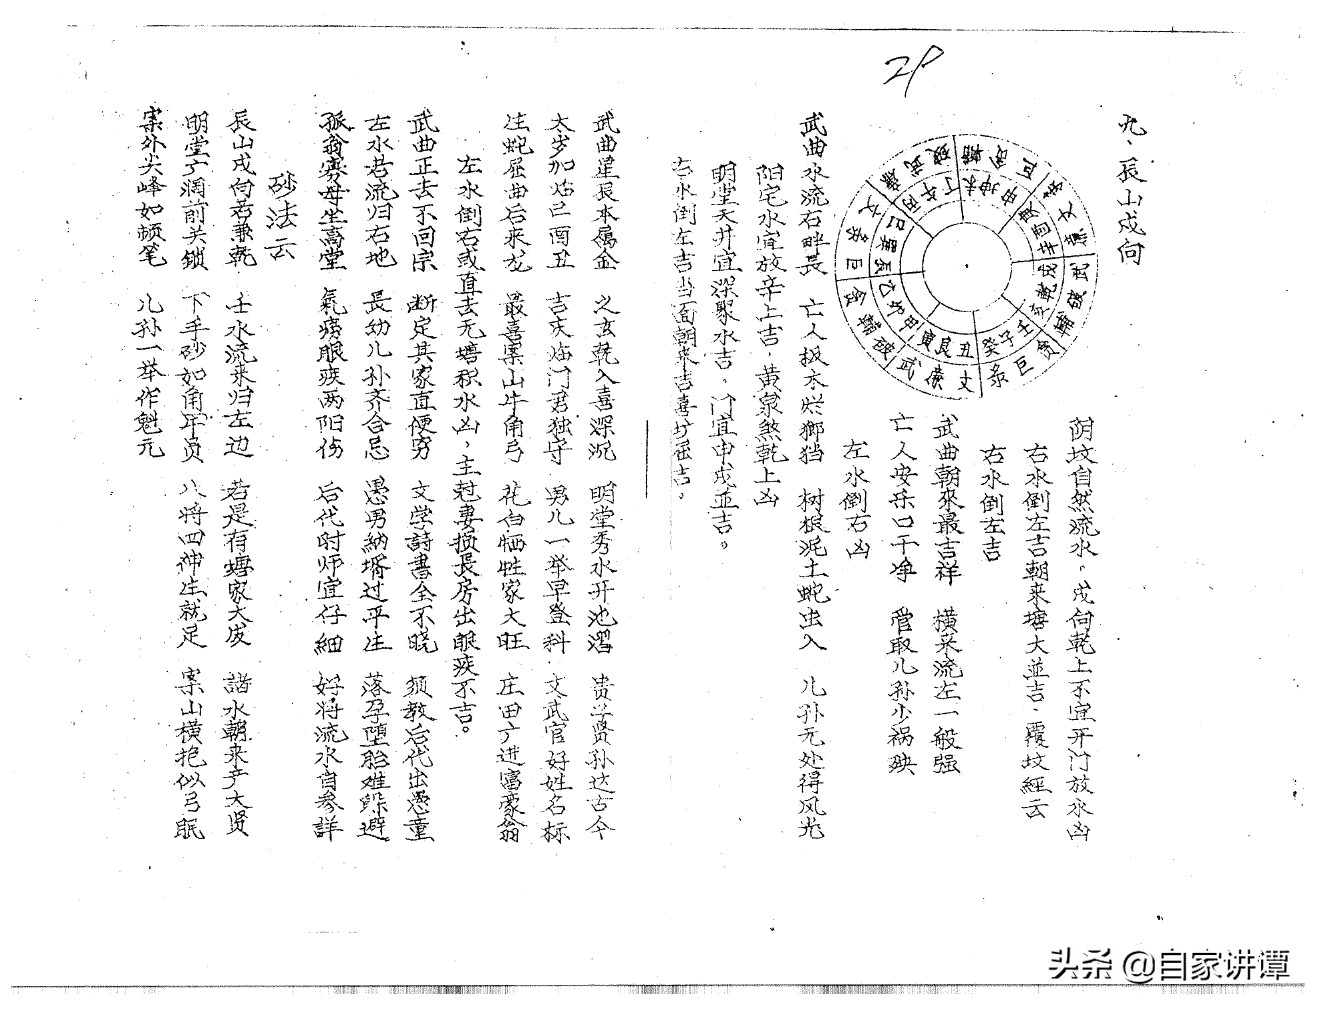 29
九、辰山戍向
阴坟自然流水，戍向乾上不宜开门放水凶
右水倒左吉朝来塘大並吉．覆坟經云
右水倒左吉
武曲朝來最吉祥 横来流左一般强
亡人安乐口干净 管取儿孙少祸殃
左水倒右凶
武曲水流右畔畏 亡人板木烂鄉挡 树根泥土蛇虫入 儿孙无处得风光
阳宅水宜放辛上吉．黄泉煞乾上凶
明堂天井宜深聚水吉．门宜申戍並吉。
右水倒左吉当面朝来吉喜圩屈吉．
武曲星辰本属金 之玄乾入喜深沉 明堂秀水开池溜 贵子贤孙达古今
太岁加临己酉丑 吉庆临门君独守 男儿一举早登科 文武官好姓名标
生蛇屈曲后来龙 最喜案山牛角弓 花白牺牲家大旺 庄田广进富豪翁
左水倒右或直去无塘积水凶，主尅妻损長房出眼疾不吉。
武曲正去不回宗 断定其家直便穷 文学詩書全不晓 须教后代出憑童
左水若流归右地 長幼儿孙齐合忌 愚男納壻过平生 落孕墮胎难躲避
孤翁寡母坐高堂 氣痨眼疾两阳伤 后代时师宜仔細 好将流水自參詳
砂法云
辰山戍向若兼乾 壬水流来归左边 若是有塘家大发 諸水朝来产大贤
明堂广濶前关鎖 下手砂如角牢员 八将四神生就足 案山横抱似弓眠
案外尖峰如顿笔 儿孙一举作魁元
头条 @自家讲谭